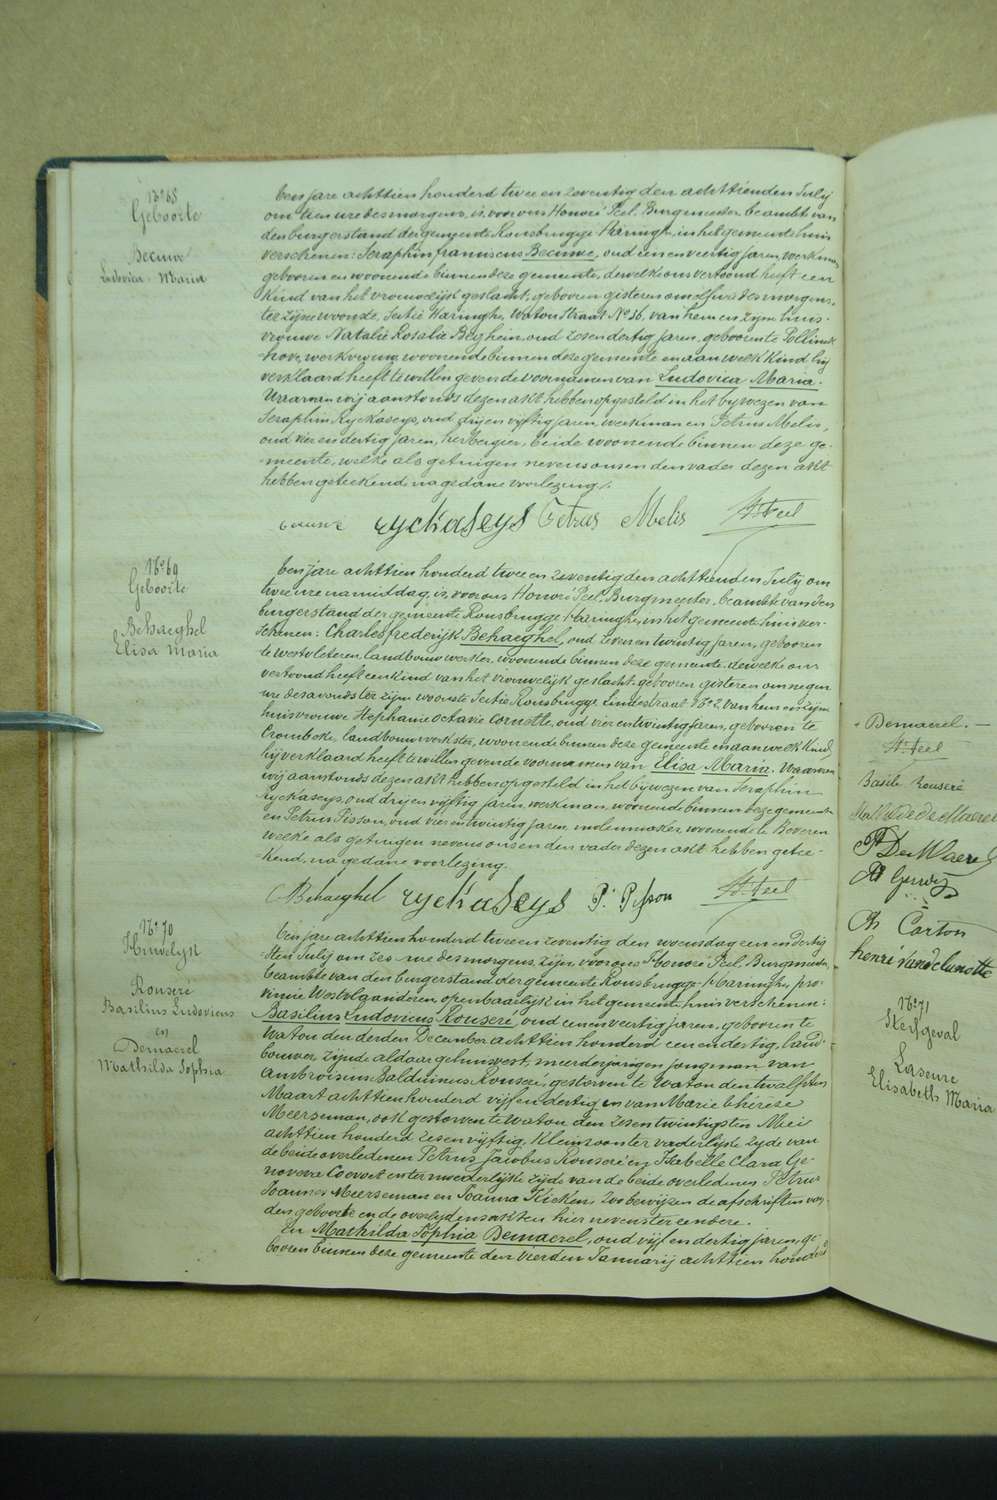 N° 68
Geboorte
Becuwe
Ludovica Maria
Ten jare achttien honderd twee en zeventig den achttienden July
om tien ure des morgens, is voor ons Honoré Peel, Burgmeester, beambt van
den burgerstand der gemeente Rousbrugge Haringhe, in het gemeente huis
verschenen: Seraphin franciscus Becuwe, oud een en veertig jaren, werkman,
geboren en woonende binnen deze gemeente, dewelke ons vertoond heeft een
Kind van het vrouwelijk geslacht, geboren gisteren om elf ure des morgens,
ter zijne woonste, Sectie Haringhe, Waton Straat N° 36, van hem en zijne huis-
vrouwe Natalie Rosalie Beghein, oud zes en dertig jaren, geboren te Pollinck-
hove, werkvrouw, woonende binnen deze gemeente en aan welk Kind hij
verklaard heeft te willen geven de voornamen van Ludovica Maria.
Waarvan wij aanstonds dezen akt hebben opgesteld in het bijwezen van
Seraphin Ryckaseys, oud drij en vijftig jaren, werkman en Petrus Melis,
oud vier en dertig jaren, herbergier, beide woonende binnen deze ge-
meente, welke als getuigen nevens ons en den vader dezen akt
hebben geteekend na gedane voorlezing.
ryckaseys Petrus Melis H. Peel
N° 69
Geboorte
Behaeghel
Elisa Maria
Ten jare achttien honderd twee en zeventig den achttienden July om
twee ure namiddag, is voor ons Honoré Peel, Burgmeester, beambt van den
burgerstand der gemeente Rousbrugge Haringhe, in het gemeente huis ver-
schenen: Charles frederijk Behaeghel, oud zeven en twintig jaren, geboren
te Westvleteren, landbouwwerker, woonende binnen deze gemeente, dewelke ons
vertoond heeft een kind van het vrouwelijk geslacht, geboren gisteren om negen
ure des avonds ter zijne woonste Sectie Rousbrugge, Lindestraat N° 2 van hem en zijne
huisvrouwe Stephanie octavie Cornette, oud vier en twintig jaren, geboren te
Crombeke, landbouwwerkster, woonende binnen deze gemeente en aan welk Kind
hij verklaard heeft te willen geven de voornamen van Elisa Maria. Waarvan
wij aanstonds dezen akt hebben opgesteld in het bijwezen van Seraphin
ryckaseys, oud drij en vijftig jaren, werkman, woonende binnen deze gemeente
en Petrus Pisson, oud vier en twintig jaren, molenmaker, woonende te Beveren
welke als getuigen nevens ons en den vader dezen akt hebben getee-
kend, na gedane voorlezing.
Behaeghel ryckaseys P. Pisson H. Peel
N° 70
Huwelijk
Rouseré
Basilius Ludovicus
en
Demaerel
Mathilda Sophia
Ten jare achttien honderd twee en zeventig den woensdag een en dertig
sten July om zes ure des morgens, zijn voor ons Honoré Peel, Burgmeester,
beambte van den burgerstand der gemeente Rousbrugge-Haringhe, pro-
vincie Westvlaanderen, openbaarlijk in het gemeente huis verschenen:
Basilius Ludovicus Rouseré, oud een en veertig jaren, geboren te
Waton den derden December achttien honderd een en dertig, land-
bouwer, zijnde aldaar gehuisvest, meerderjarigen jongman van
Ambrosius Balduinus Rouseré, gestorven te Waton den twalfsten
Maart achttien honderd vijf en dertig en van Marie thérèse
Meerseman, ook gestorven te Waton den zes en twintigsten Mei
achttien honderd zes en vijftig, Kleinzoon ter vaderlijke zijde van
de beide overledenen Petrus Jacobus Rouseré en Isabelle Clara Ge-
noveva Coevoet en ter moederlijke zijde van de beide overledenen Petrus
Joannes Meerseman en Joanna Kieken, zoo bewijzen de afschriften van
den geboorte en de overlijdensakten hier nevens ter eendere.
En Mathilda Sophia Demaerel, oud vijf en dertig jaren, ge-
boren binnen deze gemeente den vierden Januarij achttien honderd
Demaerel.
H. Peel
Basile Rouseré
Mathilde de Maerel
Ch Carton
henri Vandelanotte
N° 71
Sterfgeval
Laseure
Elisabeth Maria